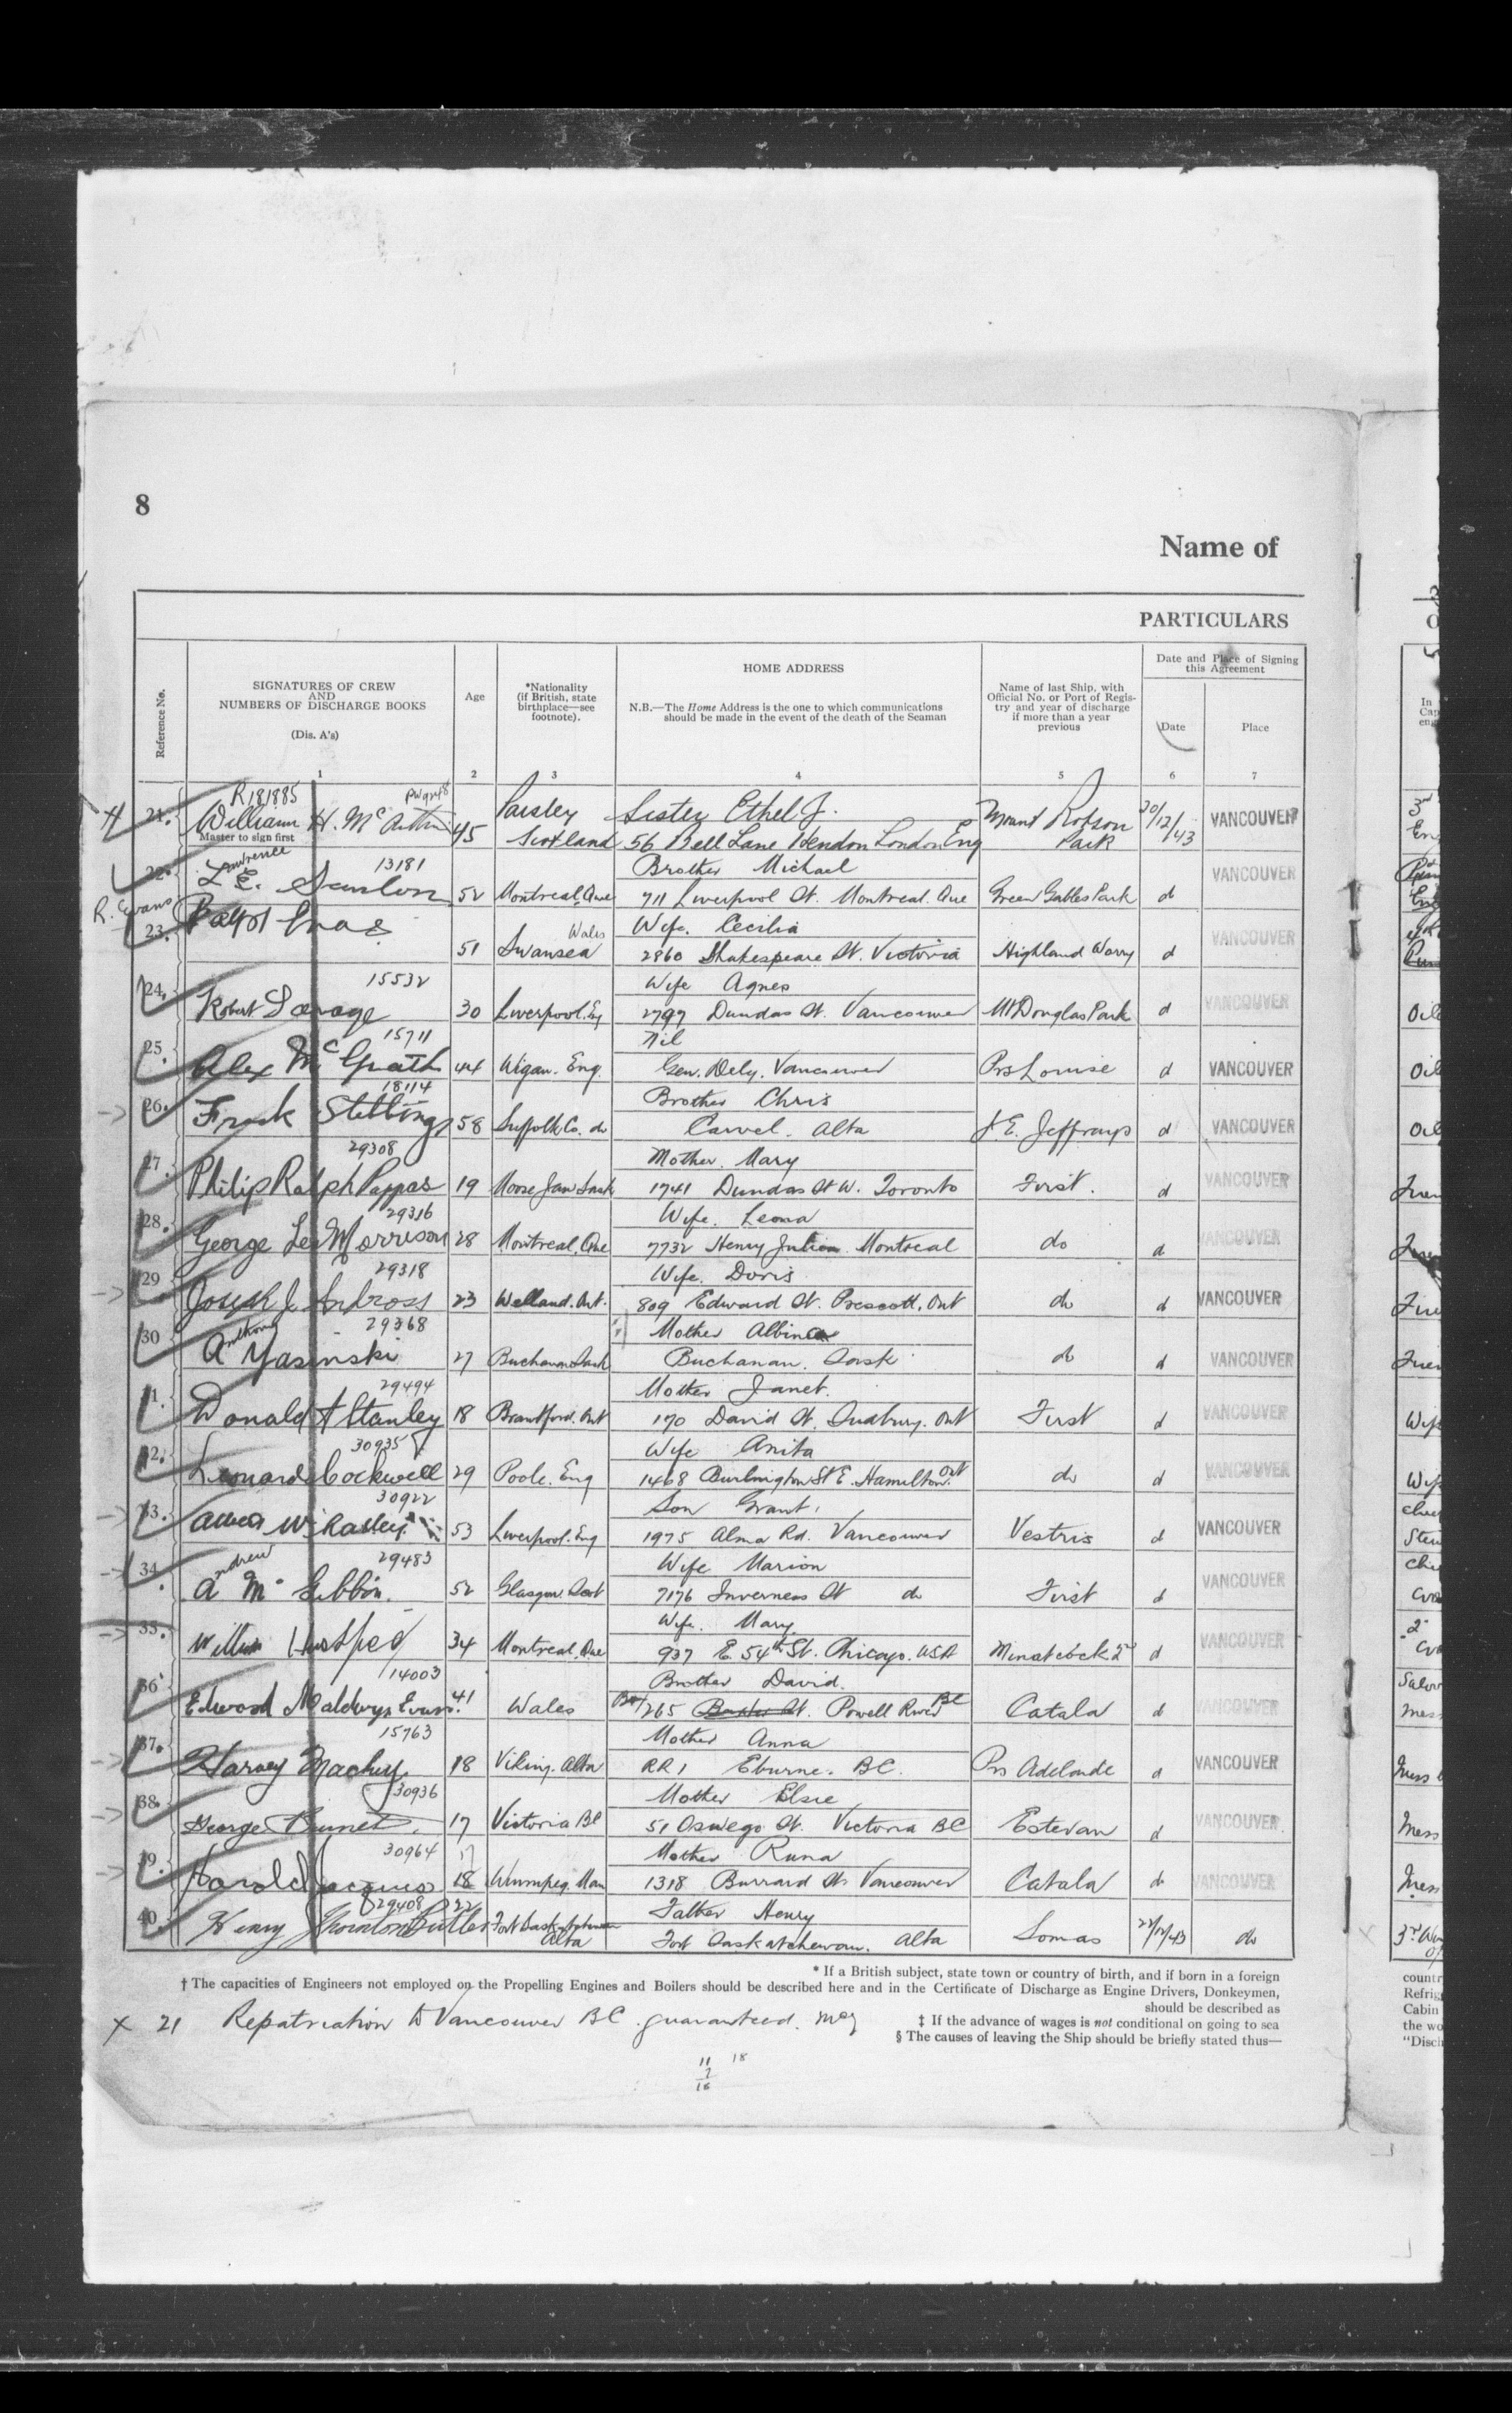 8
Name of
PARTICULARS
Reference No.
SIGNATURES OF CREW
AND
NUMBERS OF DISCHARGE BOOKS
(Dis. A's)
1
Age
2
*Nationality
(if British, state
birthplace—see
footnote).
3
HOME ADDRESS
N.B.—The Home Address is the one to which communications
should be made in the event of the death of the Seaman
4
Name of last Ship, with
Official No. or Port of Regis-
try and year of discharge
if more than a year
previous
5
Date and Place of Signing
this Agreement
Date
6
Place
7
R181885
21. William H. McArthur 45 Paisley Scotland Sister Ethel J. Mount Robson Park 20/12/43 VANCOUVER
Master to sign first
56 Bell Lane Hendon London Eng
Lawrence 13181 Brother Michael
22. L. E. 52 Montreal, Que 711 Liverpool St. Montreal. Que Green Gables Park d VANCOUVER
R. Evans
23. Wales Wife. Cecilia
51 Swansea 2860 Shakespeare St. Victoria Highland d VANCOUVER
15532 Wife Agnes
24. Robert Savage 30 Liverpool. Eng 2797 Dundas St. Vancouver Mt Douglas Park d VANCOUVER
15711 Nil
25. Alex McGrath 44 Wigan. Eng. Gen. Dely. Vancouver Prs Louise d VANCOUVER
18114 Brother Chris
26. Frank Stebbings 58 Suffolk Co. do Carvel. Alta d VANCOUVER
29308 Mother. Mary
27. Philip Ralph Pappas 19 Moose Jaw Sask 1741 Dundas St W. Toronto First. d VANCOUVER
29316 Wife. Leona
28. George Leo Morrison 28 Montreal, Que 7732 Henry Julien. Montreal do d VANCOUVER
29318 Wife. Doris
29 Joseph J. 23 Welland. Ont. 809 Edward St. Prescott, Ont do d VANCOUVER
Anthony 29368 Mother Albina
30 A Yasinski 27 Buchanan Sask Buchanan. Sask do d VANCOUVER
29494 Mother Janet.
1. Donald A Stanley 18 Brantford. Ont 170 David St. Sudbury. Ont First d VANCOUVER
30935 Wife Anita
32. Leonard Cockwell 29 Poole. Eng 1468 Burlington St E. Hamilton. Ont do d VANCOUVER
30922 Son Grant.
33. 53 Liverpool. Eng 1975 Alma Rd. Vancouver Vestris d VANCOUVER
Andrew 29483 Wife Marion
34. A McGibbon. 52 Glasgow. Scot 7176 Inverness St do First d VANCOUVER
Wife. Mary.
35. 34 Montreal, Que 937 E. 54th St. Chicago. USA d VANCOUVER
14003 Brother David.
36 Edward Maldwyn Evans. 41 Wales Box 265 Powell River BC Catala d VANCOUVER
15763 Mother Anna
37. Harvey 18 Viking. Alta RR 1 Eburne. BC. Prs Adelaide d VANCOUVER
30936 Mother Elsie
38. George 17 Victoria BC 51 Oswego St. Victoria BC Estevan d VANCOUVER
30964 17 Mother Runa
39. Harold 18 Winnipeg. Man 1318 Burrard St Vancouver Catala do VANCOUVER
29408 22 Father Henry
40. Henry Thornton Butler Fort Saskatchewan Alta Fort Saskatchewan. Alta Lomas 22/12/43 do
* If a British subject, state town or country of birth, and if born in a foreign
† The capacities of Engineers not employed on the Propelling Engines and Boilers should be described here and in the Certificate of Discharge as Engine Drivers, Donkeymen,
should be described as
‡ If the advance of wages is not conditional on going to sea
§ The causes of leaving the Ship should be briefly stated thus—
x 21 Repatriation to Vancouver BC. guaranteed.
In
Cap
eng
Oil
Oil
Oil
Mess
Mess
Mess
countr
Refrig
Cabin
the wo
"Disch